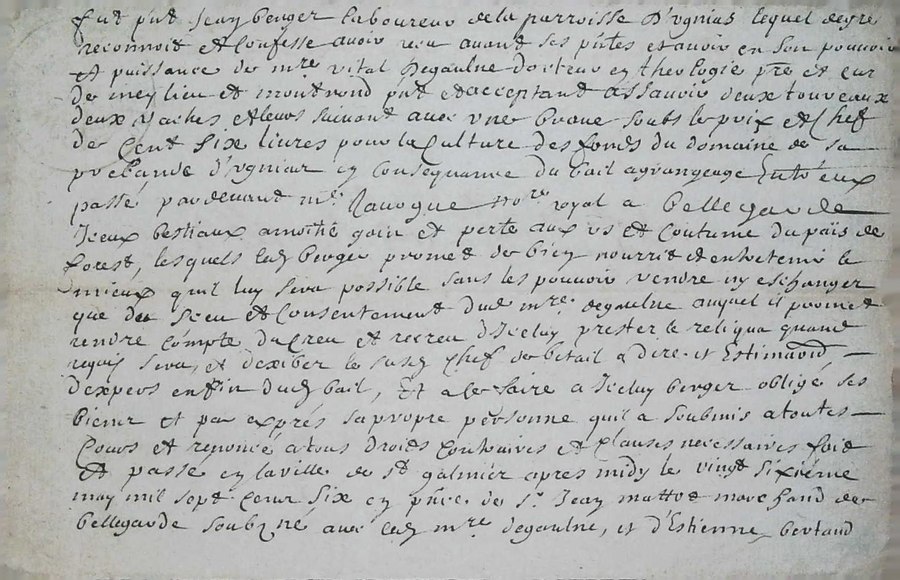 fut pnt Jean berger laboureur de la parroisse d'ugnias lequel de gré
reconnoit et Confesse avoir reçu avant ses pntes et avoir en son pouvoir
et puissance de mre vital Degaulne docteur en theologie pre et cur
de meylieu et montrond pnt et acceptant assavoir deux toureaux
deux vaches et leurs suivant avec une brave soubs le prix et Chef
de Cent Six livres pour la Culture des fonds du domaine de sa
prebande d'ugnias en Consequance du bail a grangeage Entre eux
passé pardevant me Ravogue nore royal a bellegarde
Iceux bestiaux a moitié gain et perte aux us et Coutume du païs de
forest, lesquels led berger promet de bien nourrir et entretenir le
mieux qu'il luy sera possible sans les pouvoir vendre ny eschanger
que du sceu et Consentement dud mre degaulne auquel il promet
rendre Compte du Creu et recreu d'Iceluy prester le reliqua quand
requis sera, et d'exiber le susd Chef de betail a dire et Estimaon
d'expers en fin dud bail, Et a ce faire a Iceluy berger obligé ses
biens et par exprés sa propre personne qu'il a soubmis a toutes
Cours et renoncé a tous droits Contraires et Clauses necessaires fait
et passé en la ville de st galmier apres midy le vingt sixieme
may mil sept Cent six en pnce de sr Jean mattot marchand de
bellegarde soubzné avec led mre degaulne, et d'Estienne bertaud